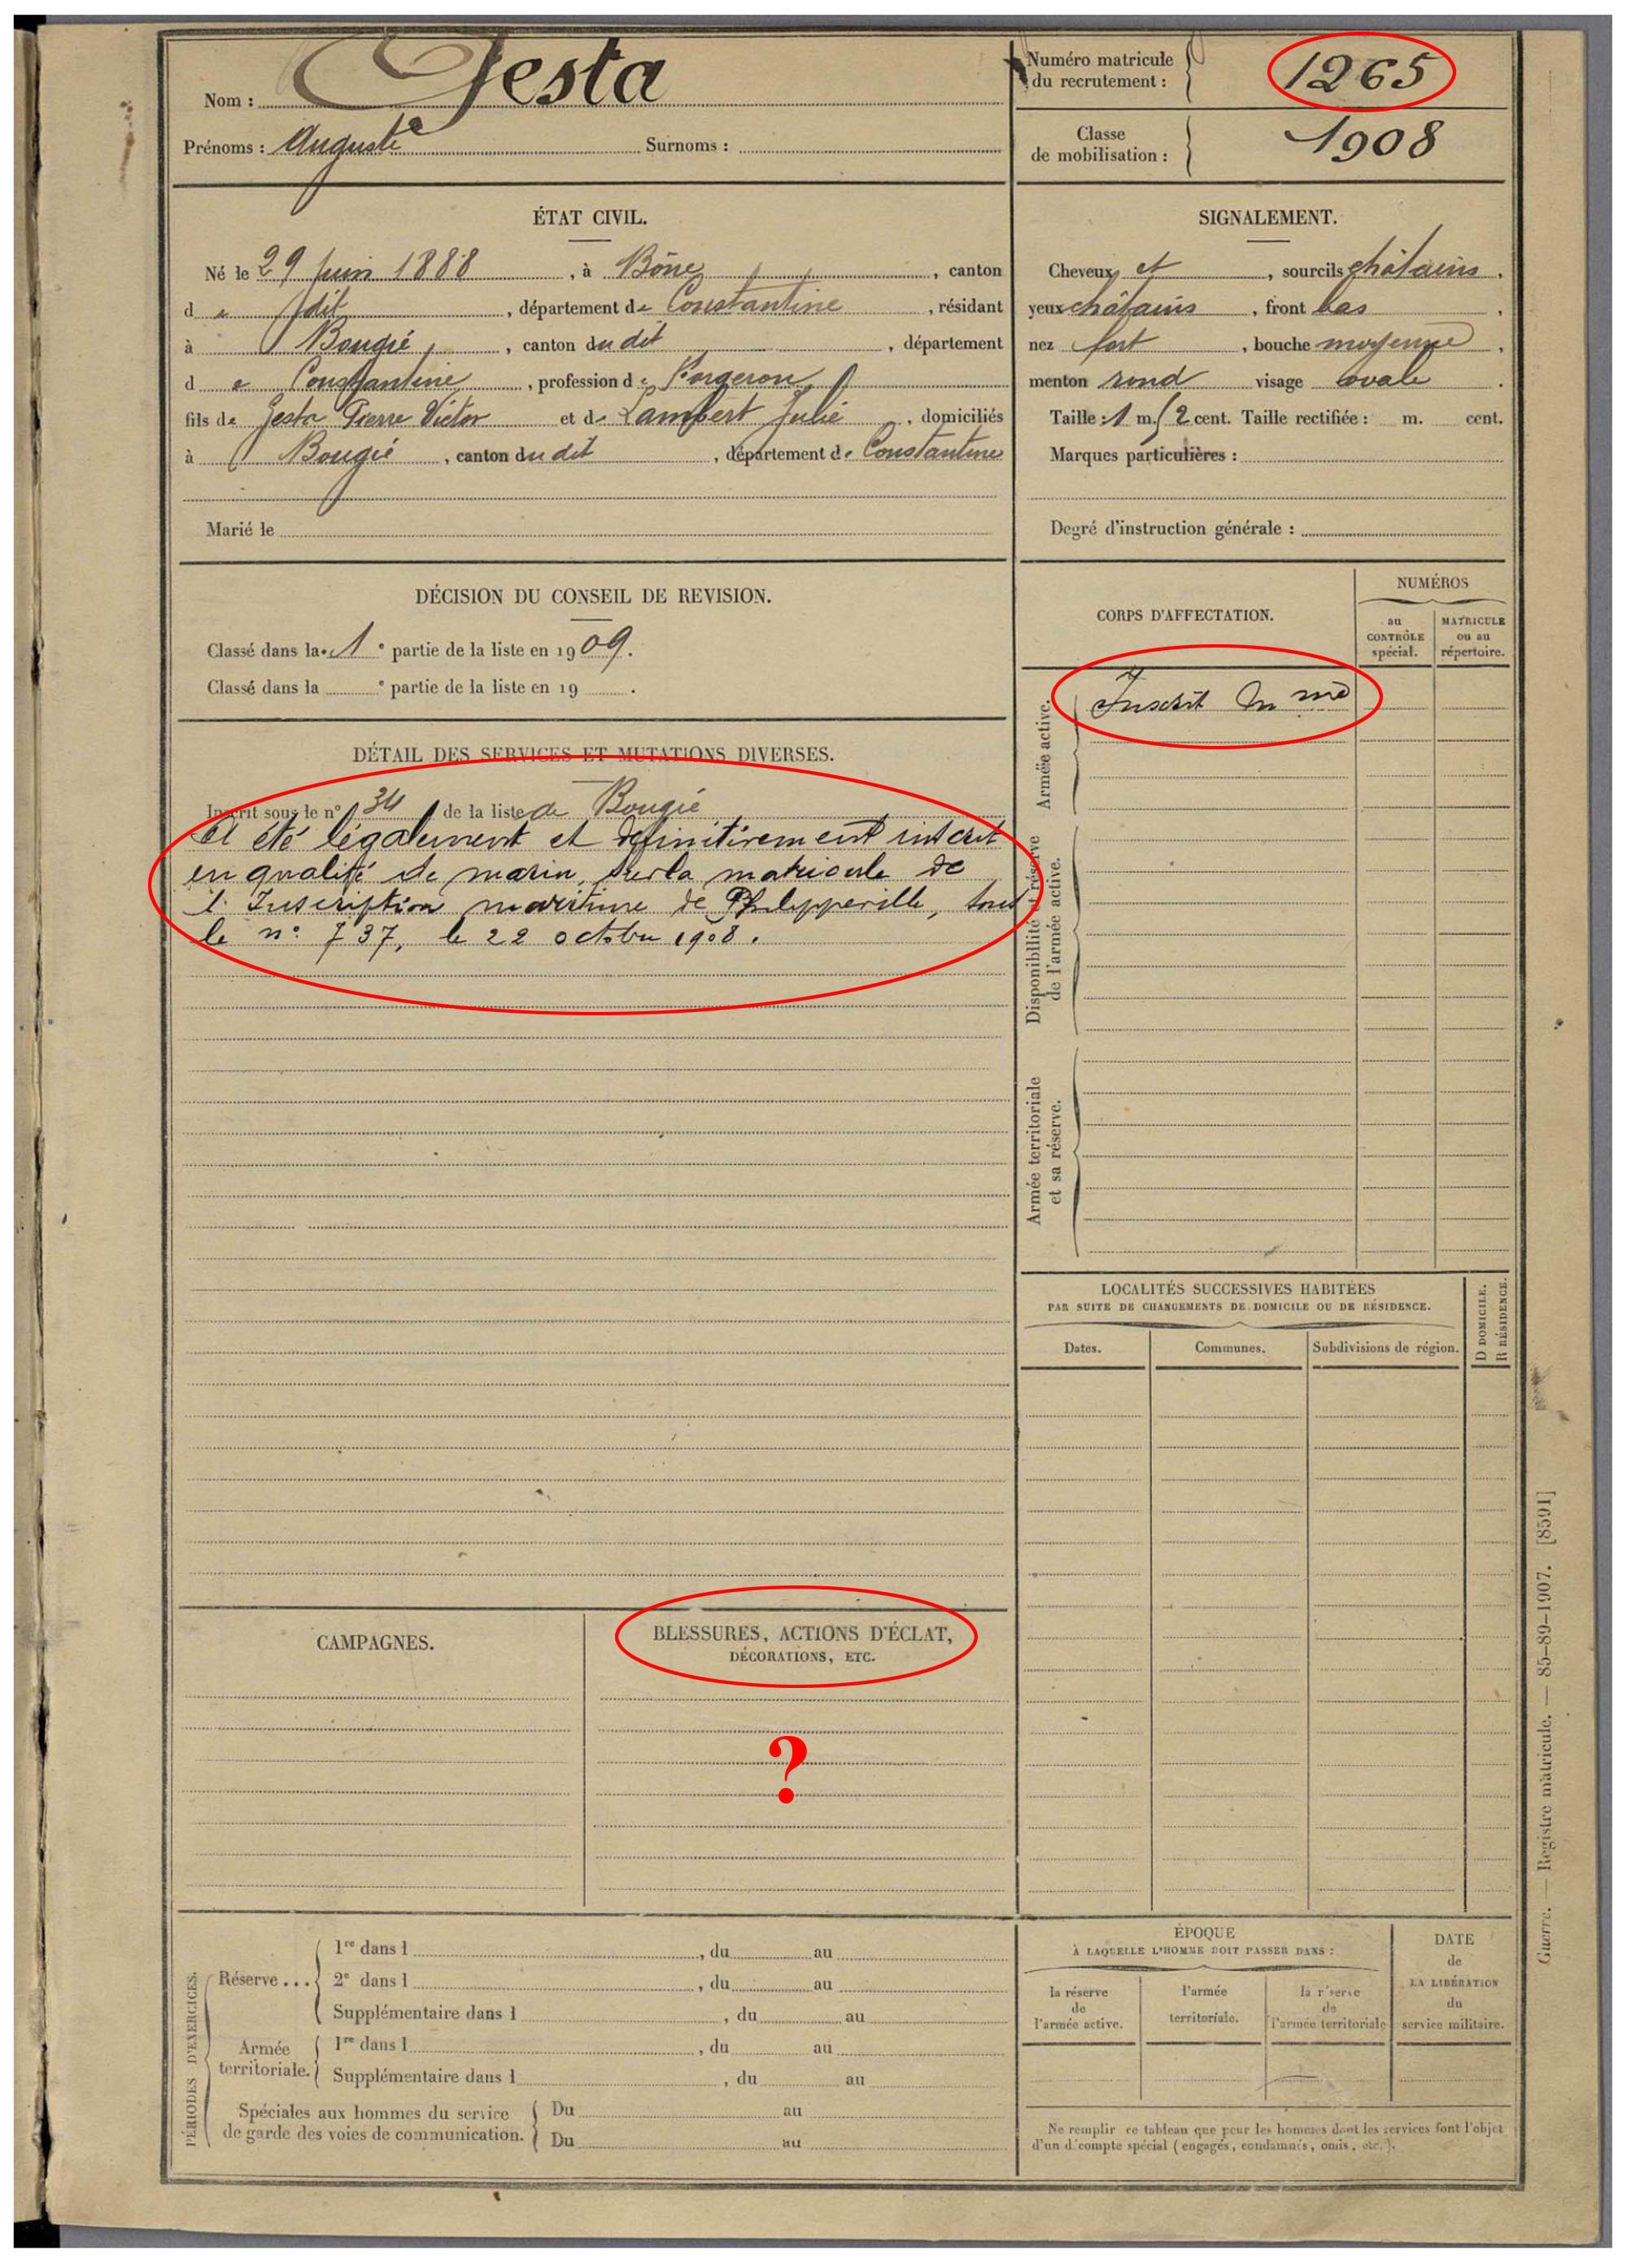 Nom : Gesta
Prénoms : Auguste Surnoms :
Numéro matricule du recrutement : 1265
Classe de mobilisation : 1908
ÉTAT CIVIL.
Né le 29 Juin 1888, à Bône, canton
d e dit, département de Constantine, résidant
à Bougié, canton du dit, département
d e Constantine, profession de Forgeron
fils de Gesta Pierre Victor et de Lambert Julie, domiciliés
à Bougié, canton du dit, département de Constantine
Marié le
SIGNALEMENT.
Cheveux et, sourcils châtains,
yeux châtains, front bas,
nez fort, bouche moyenne,
menton rond visage ovale.
Taille : 1 m. cent. Taille rectifiée : m. cent.
Marques particulières :
Degré d'instruction générale :
DÉCISION DU CONSEIL DE REVISION.
Classé dans la 1e partie de la liste en 1909.
Classé dans la e partie de la liste en 19 .
DÉTAIL DES SERVICES ET MUTATIONS DIVERSES.
Inscrit sous le n° 34 de la liste de Bougié
A été légalement et définitivement inscrit
en qualité de marin, sur la matricule de
l'Inscription maritime de Philippeville, sous
le n° 737, le 22 octobre 1908.
CORPS D'AFFECTATION.
NUMÉROS
au CONTRÔLE spécial.
MATRICULE ou au répertoire.
Armée active.
Inscrit m me
Disponibilité et réserve
de l'armée active.
Armée territoriale
et sa réserve.
LOCALITÉS SUCCESSIVES HABITÉES
PAR SUITE DE CHANGEMENTS DE DOMICILE OU DE RÉSIDENCE.
D DOMICILE.
R RÉSIDENCE.
Dates. Communes. Subdivisions de région.
CAMPAGNES.
BLESSURES, ACTIONS D'ÉCLAT,
DÉCORATIONS, ETC.
?
PÉRIODES D'EXERCICES.
Réserve... 1re dans l , du au
2e dans l , du au
Supplémentaire dans l , du au
Armée territoriale. 1re dans l , du au
Supplémentaire dans l , du au
Spéciales aux hommes du service Du au
de garde des voies de communication. Du au
ÉPOQUE
À LAQUELLE L'HOMME DOIT PASSER DANS :
la réserve de l'armée active.
l'armée territoriale.
la réserve de l'armée territoriale
DATE
de
LA LIBÉRATION
du
service militaire.
Ne remplir ce tableau que pour les hommes dont les services font l'objet
d'un décompte spécial (engagés, condamnés, omis, etc.).
Guerre. — Registre matricule. — 85-89-1907. [8591]